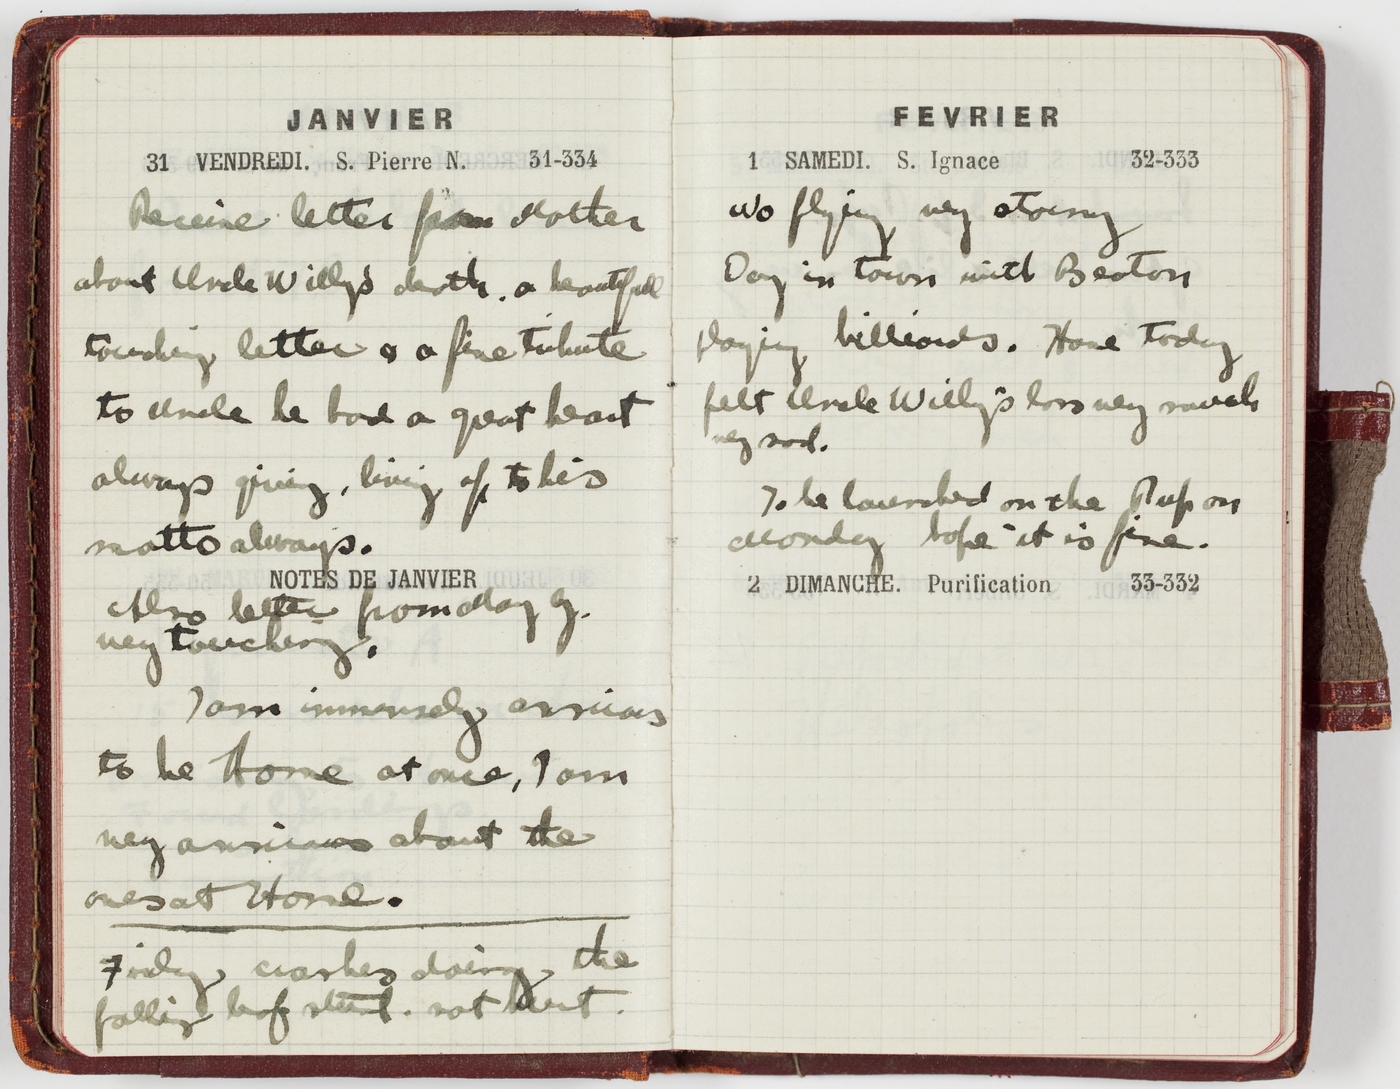 JANVIER
31 VENDREDI. S. Pierre N. 31-334
Receive letter from Mother
about Uncle Willy's death. a beautifull
touching letter & a fine tribute
to Uncle he had a great heart
always giving, living up to his
motto always.
NOTES DE JANVIER
Also letter from May G.
very touching.
I am immensely anxious
to be Home at once, I am
very anxious about the
ones at Home.
crashes doing the
falling leaf stunt. not hurt.
FEVRIER
1 SAMEDI. S. Ignace 32-333
No flying very stormy
Day in town with Beaton
playing billiards. Have today
felt Uncle Willy's loss very much
very sad.
To be launched on the Pup on
Monday hope it is fine.
2 DIMANCHE. Purification 33-332